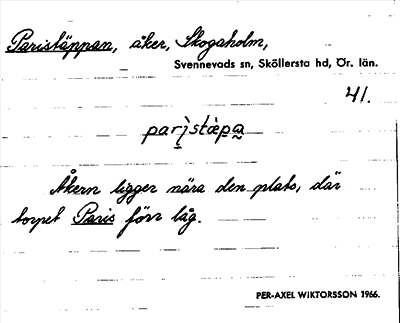 Paristäppan, åker, Skogaholm,
Svennevads sn, Sköllersta hd, Ör. län.
41.
parìstæ̀pa
Åkern ligger nära den plats, där
torpet Paris förr låg.
PER-AXEL WIKTORSSON 1966.